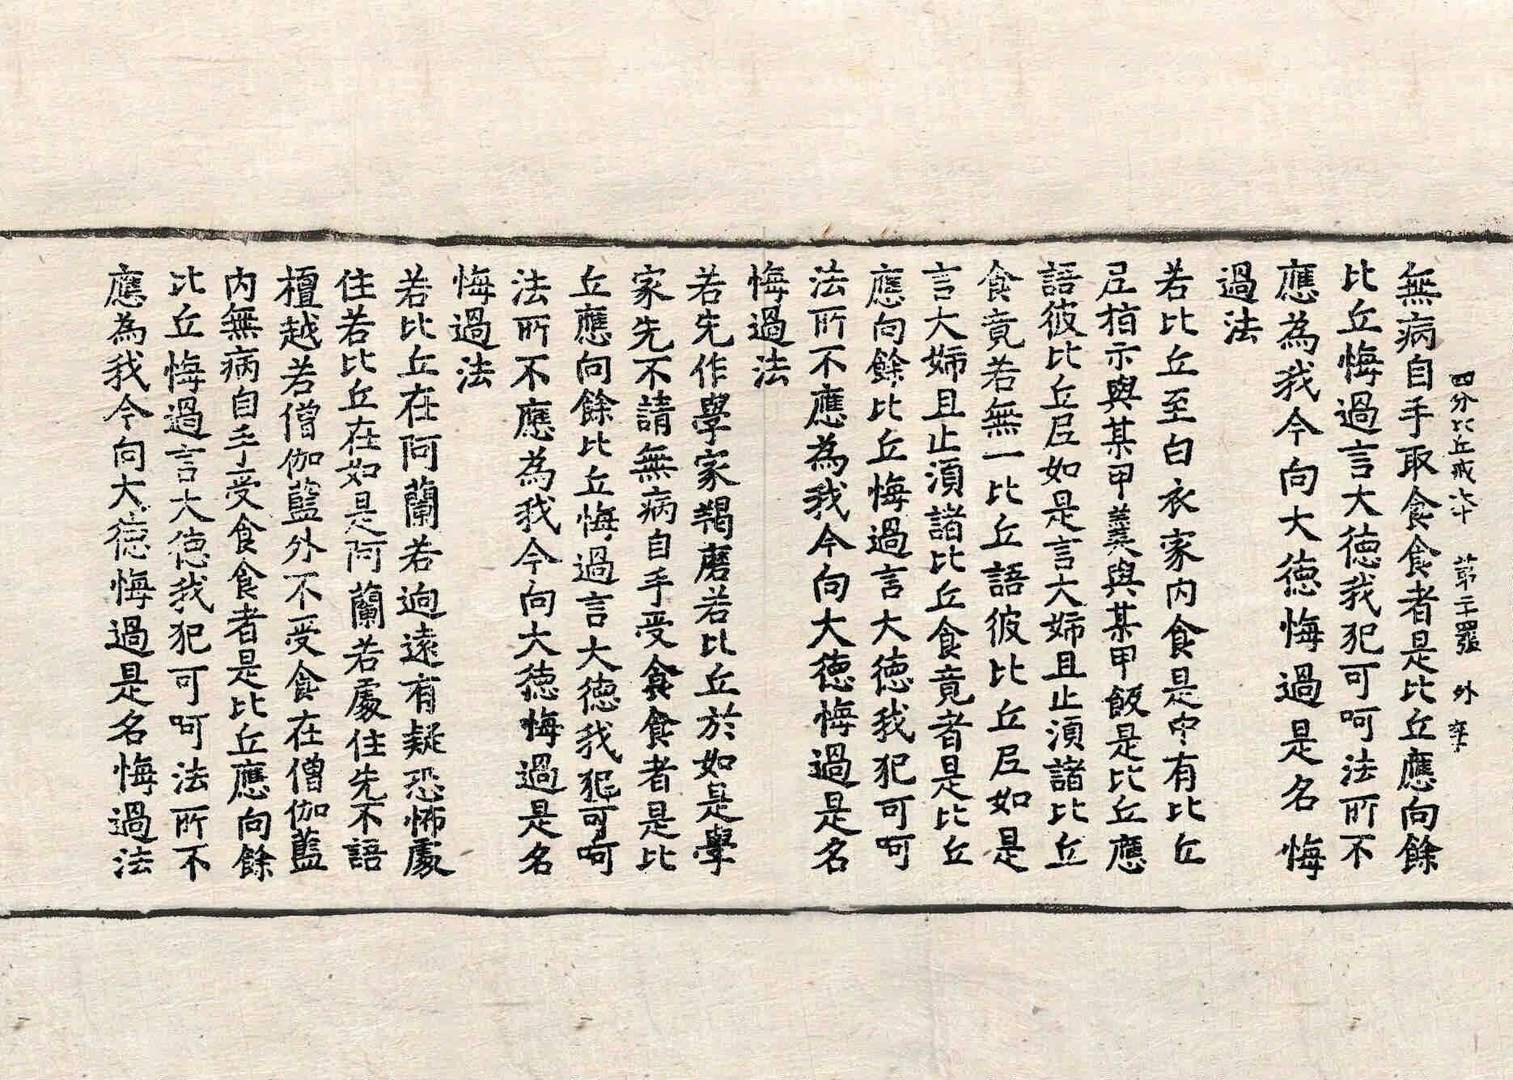 四分比丘戒本 第二十張 外 
無病自手取食食者是比丘應向餘
比丘悔過言大德我犯可呵法所不
應為我今向大德悔過是名悔
過法
若比丘至白衣家內食是中有比丘
尼指示與某甲羹與某甲飯是比丘應
語彼比丘尼如是言大姊且止須諸比丘
食竟若無一比丘語彼比丘尼如是
言大姊且止須諸比丘食竟者是比丘
應向餘比丘悔過言大德我犯可呵
法所不應為我今向大德悔過是名
悔過法
若先作學家羯磨若比丘於如是學
家先不請無病自手受食食者是比
丘應向餘比丘悔過言大德我犯可呵
法所不應為我今向大德悔過是名
悔過法
若比丘在阿蘭若逈遠有疑恐怖處
住若比丘在如是阿蘭若處住先不語
檀越若僧伽藍外不受食在僧伽藍
內無病自手受食食者是比丘應向餘
比丘悔過言大德我犯可呵法所不
應為我今向大德悔過是名悔過法